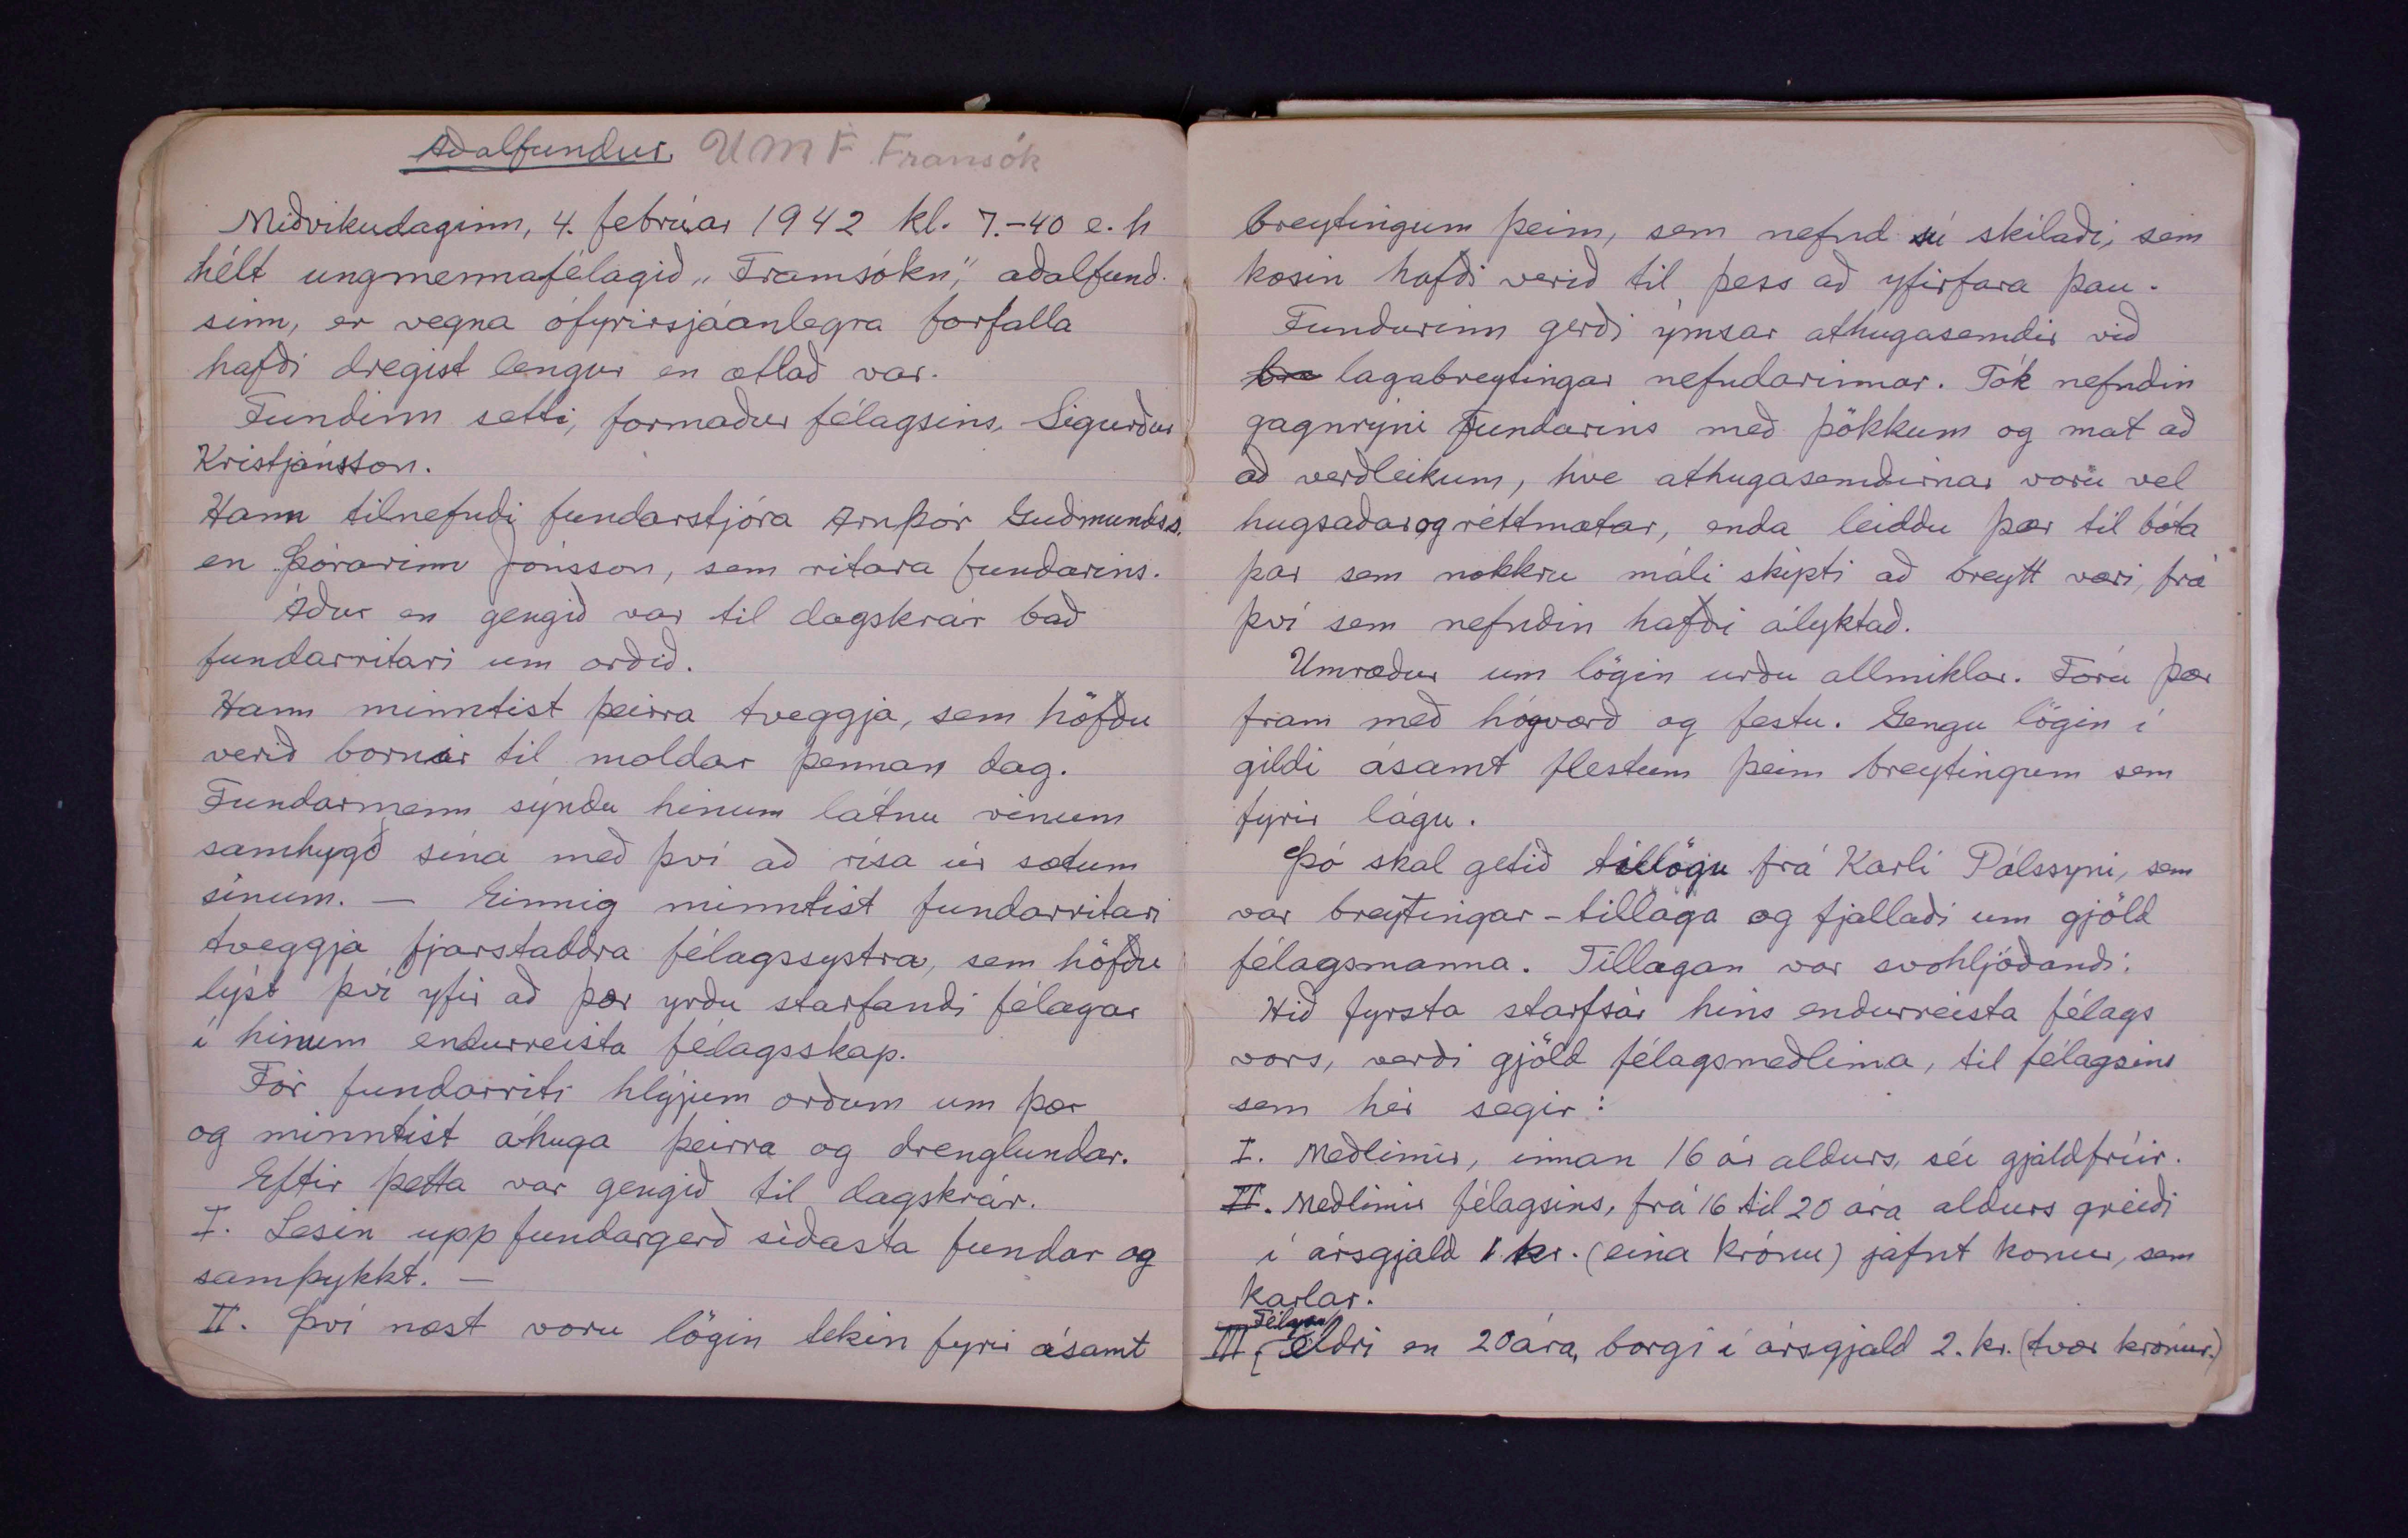 Aðalfundur. UMF Framsók
Miðvikudaginn, 4. febrúar 1942 kl. 7.-40 e. h
hélt ungmennafélagið „Framsókn", aðalfund
sinn, er vegna ófyrirsjáanlegra forfalla
hafði dregist lengur en ætlað var.
Fundinn setti, formaður félagsins, Sigurður
Kristjánsson.
Hann tilnefndi fundarstjóra Arnþór Guðmundss.
en Þórarinn Jónsson, sem ritara fundarins.
Áður en gengið var til dagskrár bað
fundarritari um orðið.
Hann minntist þeirra tveggja, sem höfðu
verið bornir til moldar þennan dag.
Fundarmenn sýndu hinum látnu vinum
samhygð sína með því að rísa úr sætum
sínum. — Einnig minntist fundarritari
tveggja fjarstaddra félagssystra, sem höfðu
lýst því yfir að þær yrðu starfandi félagar
í hinum endurreista félagsskap.
Fór fundarriti hlýjum orðum um þær
og minntist áhuga þeirra og drenglundar.
Eftir þetta var gengið til dagskrár.
I. Lesin upp fundargerð síðasta fundar og
samþykkt. —
II. Því næst voru lögin tekin fyrir ásamt
breytingum þeim, sem nefnd sú skilaði, sem
kosin hafði verið til þess að yfirfara þau.
Fundurinn gerði ýmsar athugasemdir við
bre lagabreytingar nefndarinnar. Tók nefndin
gagnrýni fundarins með þökkum og mat að
að verðleikum, hve athugasemdirnar voru vel
hugsaðar og réttmætar, enda leiddu þær til bóta
þar sem nokkru máli skipti að breytt væri, frá
því sem nefndin hafði ályktað.
Umræður um lögin urðu allmiklar. Fóru þær
fram með hógværð og festu. Gengu lögin í
gildi ásamt flestum þeim breytingum sem
fyrir lágu.
Þó skal getið tillögu frá Karli Pálssyni, sem
var breytingar-tillaga og fjallaði um gjöld
félagsmanna. Tillagan var svohljóðandi:
Hið fyrsta starfsár hins endurreista félags
vors, verði gjöld félagsmeðlima, til félagsins
sem hér segir:
I. Meðlimir, innan 16 ár aldurs, séu gjaldfríir.
II. Meðlimir félagsins, frá 16 til 20 ára aldurs greiði
í ársgjald 1 kr. (eina krónu) jafnt konur, sem
karlar.
Félagar
III. eldri en 20 ára, borgi í ársgjald 2. kr. (tvær krónur.)